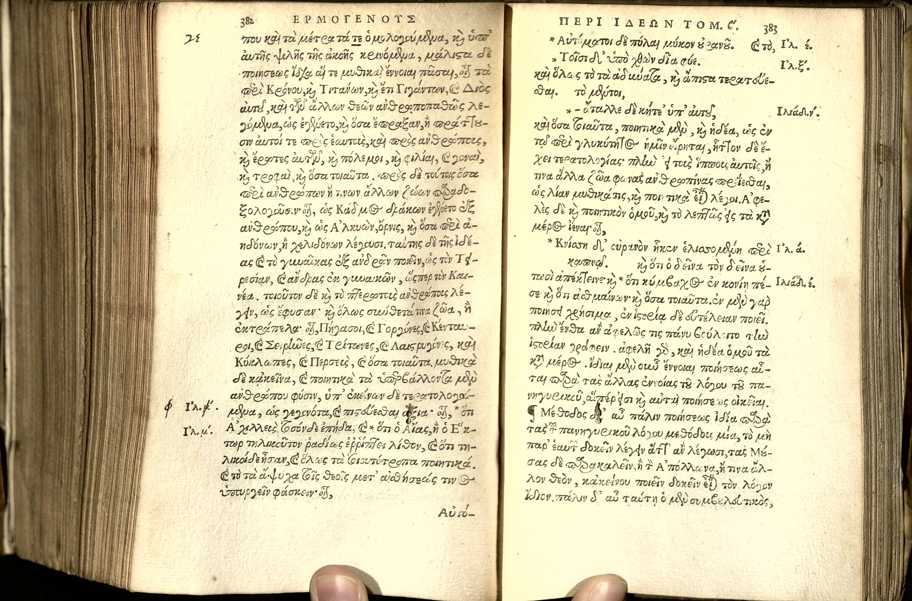 382 ΕΡΜΟΓΕΝΟΥΣ
που καὶ τὰ μέτρα τά τε ὁμολογούμενα, καὶ ὑπ'
αὐτῆς ψιλῆς τῆς ἀκοῆς κρινόμενα, μάλιστα δὲ
ποιήσεως ἴδια αἵ τε μυθικαὶ ἔννοιαι πᾶσαι, οἷον τὰ
περὶ Κρόνου, καὶ Τιτάνων, καὶ ἔτι Γιγάντων, καὶ Διὸς
αὐτοῦ, καὶ τῶν ἄλλων θεῶν ἀνθρωποπαθῶς λε-
γόμενα, ὡς ἐγένετο, καὶ ὅσα ἔπραξαν, ἢ πράττου-
σιν αὐτοί τε πρὸς ἑαυτοὺς, καὶ πρὸς ἀνθρώπους,
καὶ ἔρωτες αὐτῶν, καὶ πόλεμοι, καὶ φιλίαι, καὶ γοναὶ,
καὶ τροφαὶ, καὶ ὅσα τοιαῦτα. πρὸς δὲ τούτοις ὅσα
περὶ ἀνθρώπων ἤ τινων ἄλλων ζώων παραδο-
ξολογοῦσιν. οἷον, ὡς Κάδμος δράκων ἐγένετο ἐξ
ἀνθρώπου, καὶ ὡς Ἀλκυὼν, ὄρνις, καὶ ὅσα περὶ ἀη-
δόνων, ἢ χελιδόνων λέγουσι. ταύτης δὲ τῆς ἰδέ-
ας καὶ τὸ γυναῖκας ἐξ ἀνδρῶν ποιεῖν, ὡς τὸν Τει-
ρεσίαν, καὶ ἄνδρας ἐκ γυναικῶν, ὥσπερ τὸν Και-
νέα. τοιοῦτον δὲ καὶ τὸ πτερωτοὺς ἀνθρώπους λέ-
γειν, ὡς ἔφυσαν. καὶ ὅλως σύνθετά τινα ζῶα, ἢ
ἐκτράπελα. οἷον, Πήγασοι, καὶ Γοργόνες, καὶ Κένταυ-
ροι, καὶ Σειρῆνες, καὶ Τρίτωνες, καὶ Λαιστρυγόνες, καὶ
Κύκλωπες, καὶ Περσεὺς, καὶ ὅσα τοιαῦτα. μυθικὰ
δὲ κἀκεῖνα, καὶ ποιητικὰ τὰ ὑπερβάλλοντα μὲν
φ Ἰλ. ψ. ἀνθρώπου φύσιν, ὑπ' ἐκείνων δὲ τερατολογού-
μενα, ὡς γεγονότα, καὶ πιστεύεσθαι ἄξια. οἷον, * ὅτι
Ἰλ. μ. Ἀχιλλεὺς τοσόνδε ἐπήδα, καὶ * ὅτι ὁ Αἴας, ἢ ὁ Ἕκ-
τωρ τηλικοῦτον ῥᾳδίως ἐῤῥίπτει λίθον, καὶ ὅτι τη-
λικοίδε ἦσαν, καὶ ὅλως τὰ τοιουτότροπα ποιητικά.
καὶ τὸ τὰ ἄψυχα τοῖς θεοῖς μετ' αἰσθήσεώς τινος
ὑπουργεῖν φάσκειν. οἷον,
Αὐτό-
ΠΕΡΙ ΙΔΕΩΝ ΤΟΜ. Ϛ'. 383
* Αὐτόματοι δὲ πύλαι μύκον οὐρανοῦ. καὶ τὸ, Ἰλ. έ.
* Τοῖσι δ' ὑπὸ χθὼν δῖα φύε. Ἰλ. ξ.
καὶ ὅλως τὸ τὰ ἀδύνατα, καὶ ἄπιστα τερατεύε-
σθαι. τοιοῦτοι,
* – ἄταλλε δὲ κήτε' ὑπ' αὐτοῦ, Ἰλιάδ. ν.
καὶ ὅσα τοιαῦτα, ποιητικὰ μὲν, καὶ ἡδέα, ὡς ἐν
τῷ περὶ γλυκύτητος ἡμῖν εἴρηται, ἧττον δὲ ἔ-
χει τερατολογίας πλὴν εἰ τοὺς ἵππους αὐτοῖς, ἤ
τινα ἄλλα ζῶα φωνὰς ἀνθρωπίνας προΐεσθαι,
ὡς λίαν μυθικῶς τις, καὶ ποιητικὰ εἶναι λέγοι. Ἀφε-
λὲς δὲ καὶ ποιητικὸν ὁμοῦ, καὶ τὸ λεπτῶς εἰς τὰ κατὰ
μέρος ἰέναι. οἷον,
* Κνίσση δ' οὐρανὸν ἧκεν ἑλισσομένη περὶ Ἰλ. ά.
καπνῷ. καὶ ὅτι ὁ δεῖνα τὸν δεῖνα οὑ-
τωσὶ ἀπέκτεινε. καὶ * ὅτι κύμβαχος ἐν κονίῃ πέ- Ἰλιάδ. έ.
σε καὶ ὅτι ἀσθμαίνων. καὶ ὅσα τοιαῦτα. ἐν μὲν γὰρ
ποιήσει χρήσιμα, ἐν ἱστορίᾳ δὲ εὐτέλειαν ποιεῖ.
πλὴν ἔνθα ἂν ἀφελῶς τις πάνυ βούλοιτο τὴν
ἱστορίαν γράφειν. ἀφελῆ γὰρ, καὶ ἡδέα ὁμοῦ τὰ
κατὰ μέρος. ἴδιαι μὲν οὖν ἔννοιαι ποιήσεως αὗ-
ται παρὰ τὰς ἄλλας ἐννοίας τοῦ λόγου τοῦ πα-
νηγυρικοῦ, αἵπερ εἰσὶ καὶ αὐταὶ ποιήσεως οἰκεῖαι.
¶ Μέθοδος δ' αὖ πάλιν ποιήσεως ἰδία παρὰ
τὰς τοῦ πανηγυρικοῦ λόγου μεθόδους μία, τὸ μὴ
παρ' ἑαυτοῦ δοκεῖν λέγειν ἅττ' ἂν λέγωσι, τὰς Μού-
σας δὲ παρακαλεῖν, ἢ τὸν Ἀπόλλωνα, ἤ τινα ἄλ-
λον θεὸν, κἀκείνου ποιεῖν δοκεῖν εἶναι τὸν λόγον
ἴδιον. πάλιν δ' αὖ ταύτῃ ὁ μὲν συμβουλευτικὸς,